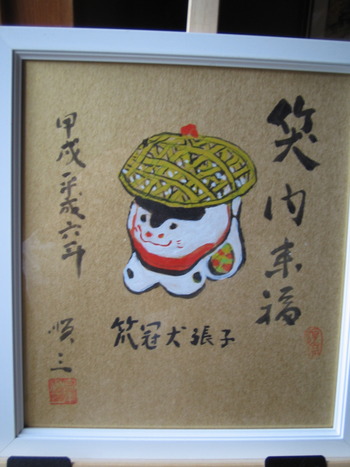 笑内来福
笊冠犬張子
甲戌平成六年
順三